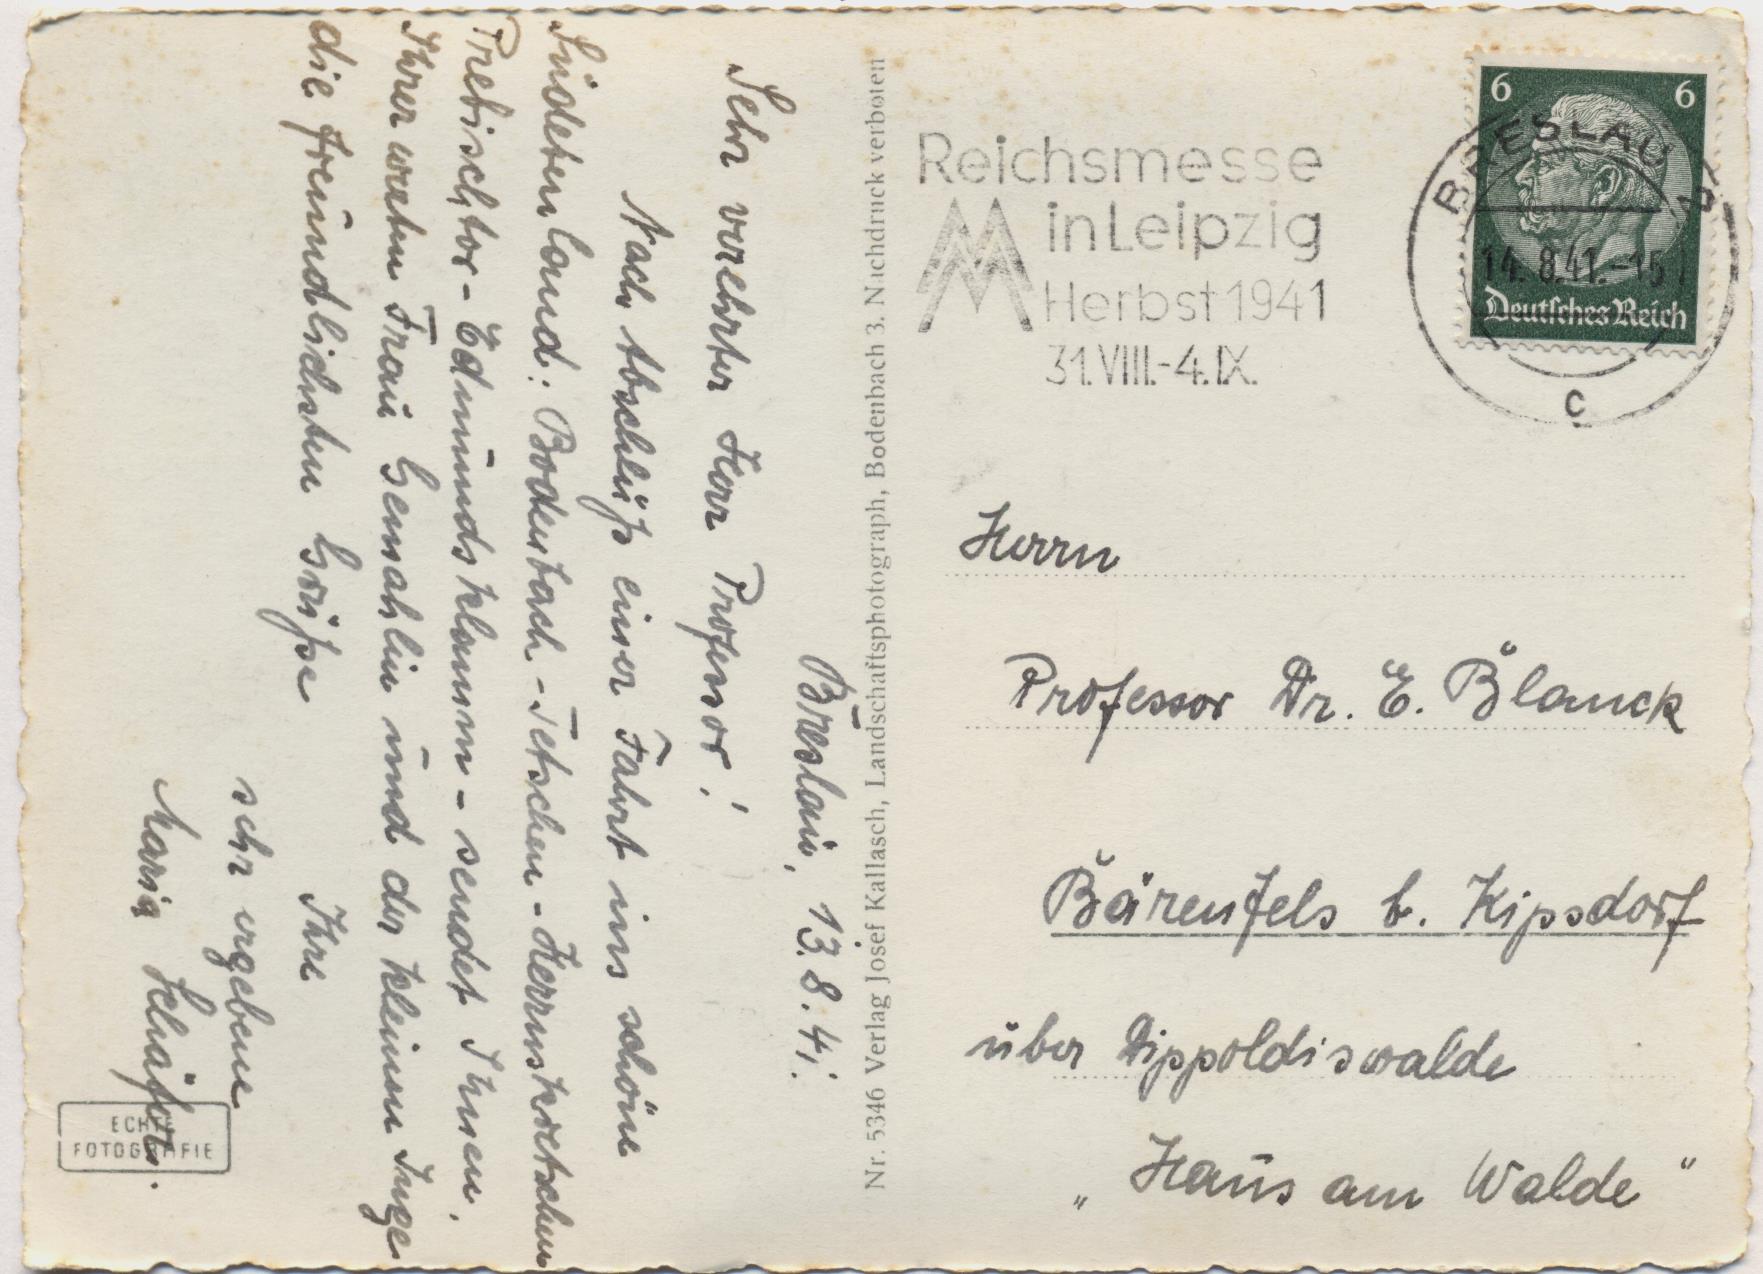 Breslau, 13.8.41.
Sehr verehrter Herr Professor!
Nach Abschluß einer Fahrt ins schöne
Sudetenland: Bodenbach-Tetschen-Herrnskretschen
Prebischtor-Edmundsklamm-sendet Ihnen,
Ihrer werten Frau Gemahlin und der kleinen Inge
die freundlichsten Grüße
Ihre
sehr ergebene
Maria Schäfer.
ECHTE
FOTOGRAFIE
Nr. 5346 Verlag Josef Kallasch, Landschaftsphotograph, Bodenbach 3. Nachdruck verboten
Reichsmesse
in Leipzig
Herbst 1941
31.VIII.-4.IX.
6 6
Deutsches Reich
BRESLAU 2
14.8.41.-15
c
Herrn
Professor Dr. E. Blanck
Bärenfels b. Kipsdorf
über Dippoldiswalde
„Haus am Walde"